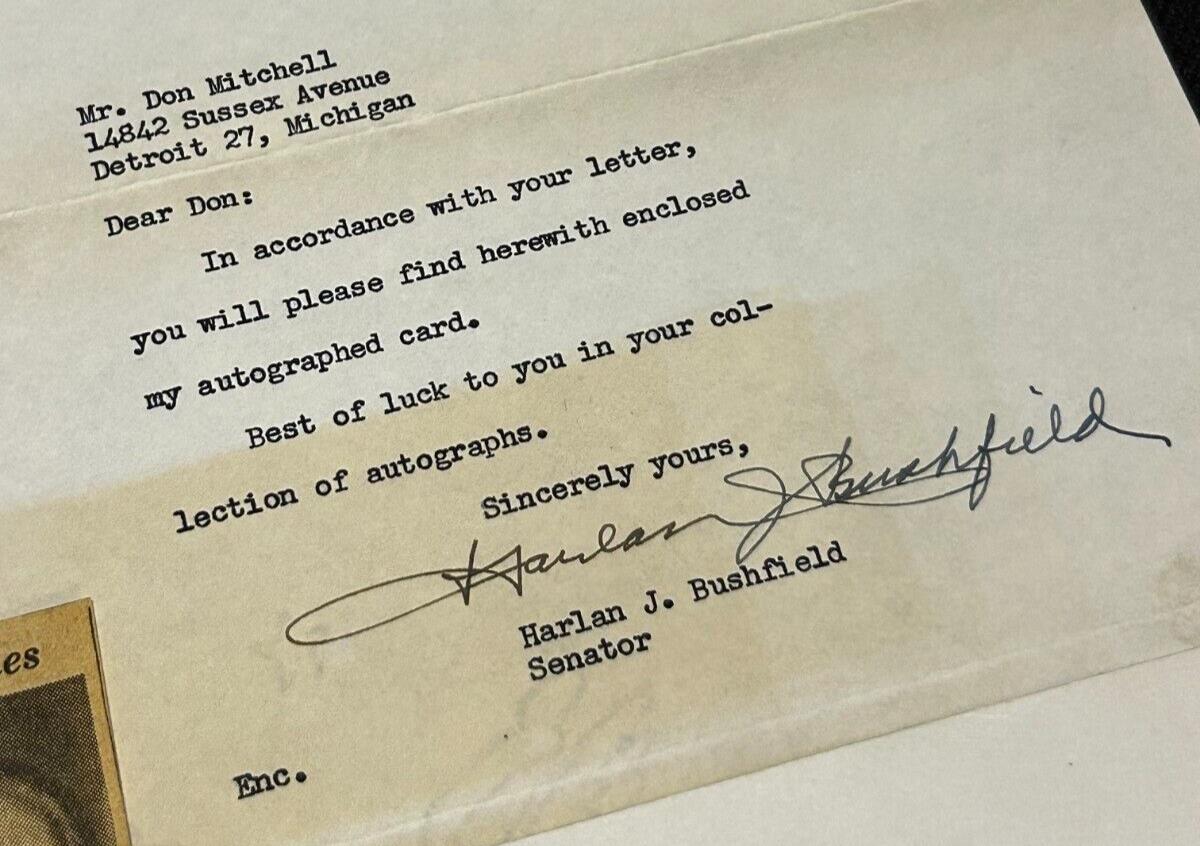 Mr. Don Mitchell
14842 Sussex Avenue
Detroit 27, Michigan
Dear Don:
In accordance with your letter,
you will please find herewith enclosed
my autographed card.
Best of luck to you in your col-
lection of autographs.
Sincerely yours,
Harlan J Bushfield
Harlan J. Bushfield
Senator
Enc.
es